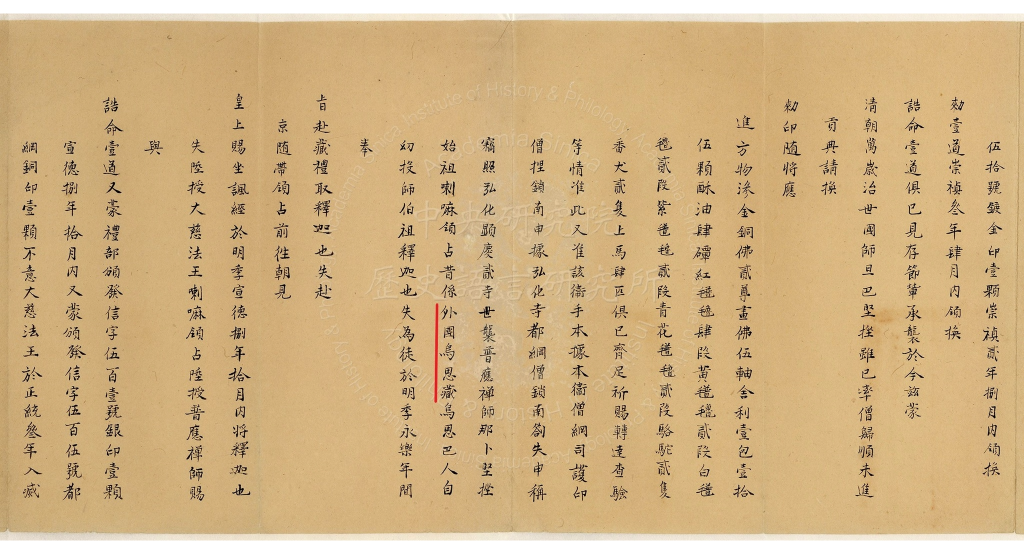 伍拾號鍍金印壹顆崇禎貳年捌月內領換
勑壹道崇禎叁年肆月內領換
誥命壹道俱已見存節輩承襲於今茲蒙
清朝萬歲治世國師旦巴堅挫雖已率僧歸順未進
貢典請換
勑印隨將應
進方物滲金銅佛貳尊畫佛伍軸舍利壹包壹拾
伍顆酥油肆礶紅氆氌肆段黃氆氌貳段白氆
氌貳段紫氆氌貳段青花氆氌貳段駱駝貳隻
番犬貳隻上馬肆匹俱已齊足祈賜轉達查驗
等情准此又准該衞手本據本衞僧綱司護印
僧捏鎖南申據弘化寺都綱僧鎖南劄失申稱
竊照弘化顯慶貳寺世襲普應禪師那卜堅挫
始祖喇嘛領占昔係外國烏思藏烏思巴人自
幼投師伯祖釋迦也失為徒於明季永樂年間
奉
旨赴藏禮取釋迦也失赴
京隨帶領占前徃朝見
皇上賜坐諷經於明季宣德捌年拾月內將釋迦也
失陞授大慈法王喇嘛領占陞授普應禪師賜
與
誥命壹道又蒙禮部頒發信字伍百壹號銀印壹顆
宣德捌年拾月內又蒙頒發信字伍百伍號都
綱銅印壹顆不意大慈法王於正統叁年入滅
中央研究院
歷史語言研究所